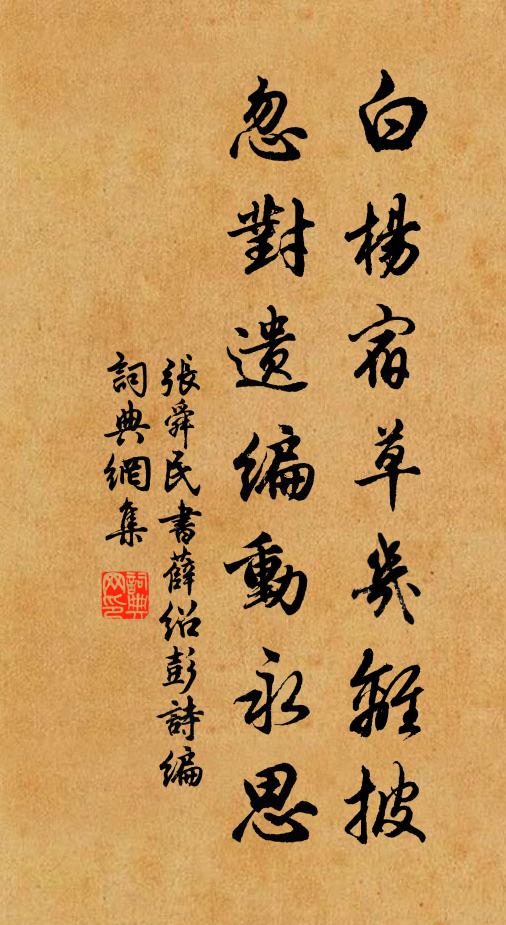 白楊宿草幾離披
忽對遺編動永思
張舜民書薛紹彭詩編
詞典網集
詞典网印